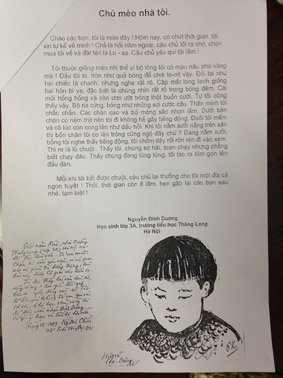 Chú mèo nhà tôi.
Chào các bạn, tôi là mèo đây ! Hôm nay, có chút thời gian, tôi
xin tự kể về mình ! Chả là hồi năm ngoái, cậu chủ tôi ra chợ, chọn
mua tôi về và đặt tên là Lu - sa. Cậu chủ yêu quí tôi lắm !
Tôi thuộc giống mèo nhị thể vì bộ lông tôi có màu nâu pha vàng
mà ! Đầu tôi to, tròn như quả bóng để chơi te-nít vậy. Đôi tai như
hai chiếc lá chanh, nhưng nghe rất rõ. Cặp mắt long lanh giống
hai hòn bi ve, đặc biệt là chúng nhìn rất rõ trong bóng đêm. Cái
mũi hồng hồng và còn ươn ướt trông thật buồn cười. Tự tôi cũng
thấy vậy. Bộ ria cứng, bóng như những sợi cước câu. Thân mình tôi
chắc chắn. Các chân cao và bộ móng sắc nhọn lắm. Dưới bàn
chân có nệm thịt nên tôi đi không hề gây tiếng động. Đuôi tôi mềm
và cỏ lúc con cong lên như dấu hỏi. Khi tôi nằm sưởi nắng trên sân
thì bốn chân tôi co lên trông cũng ngộ đấy chứ ? Đang nằm sưởi,
bỗng tôi nghe thấy tiếng động, tôi chồm dậy rồi rón rén đi vào xem.
Thì ra là lũ chuột. Thấy tôi, chúng sợ hãi, toan chạy nhưng chẳng
biết chạy đâu. Thấy chúng đang lúng túng, tôi lao ra tóm gọn tên
đầu đàn.
Mỗi khi tôi bắt được chuột, cậu chủ lại thưởng cho tôi một đĩa cá
ngon tuyệt ! Thôi, thời gian còn ít lắm, hẹn gặp lại các bạn sau
nhé, tạm biệt !
Nguyễn Đình Dương
Học sinh lớp 3A, trường tiểu học Thăng Long
Hà Nội